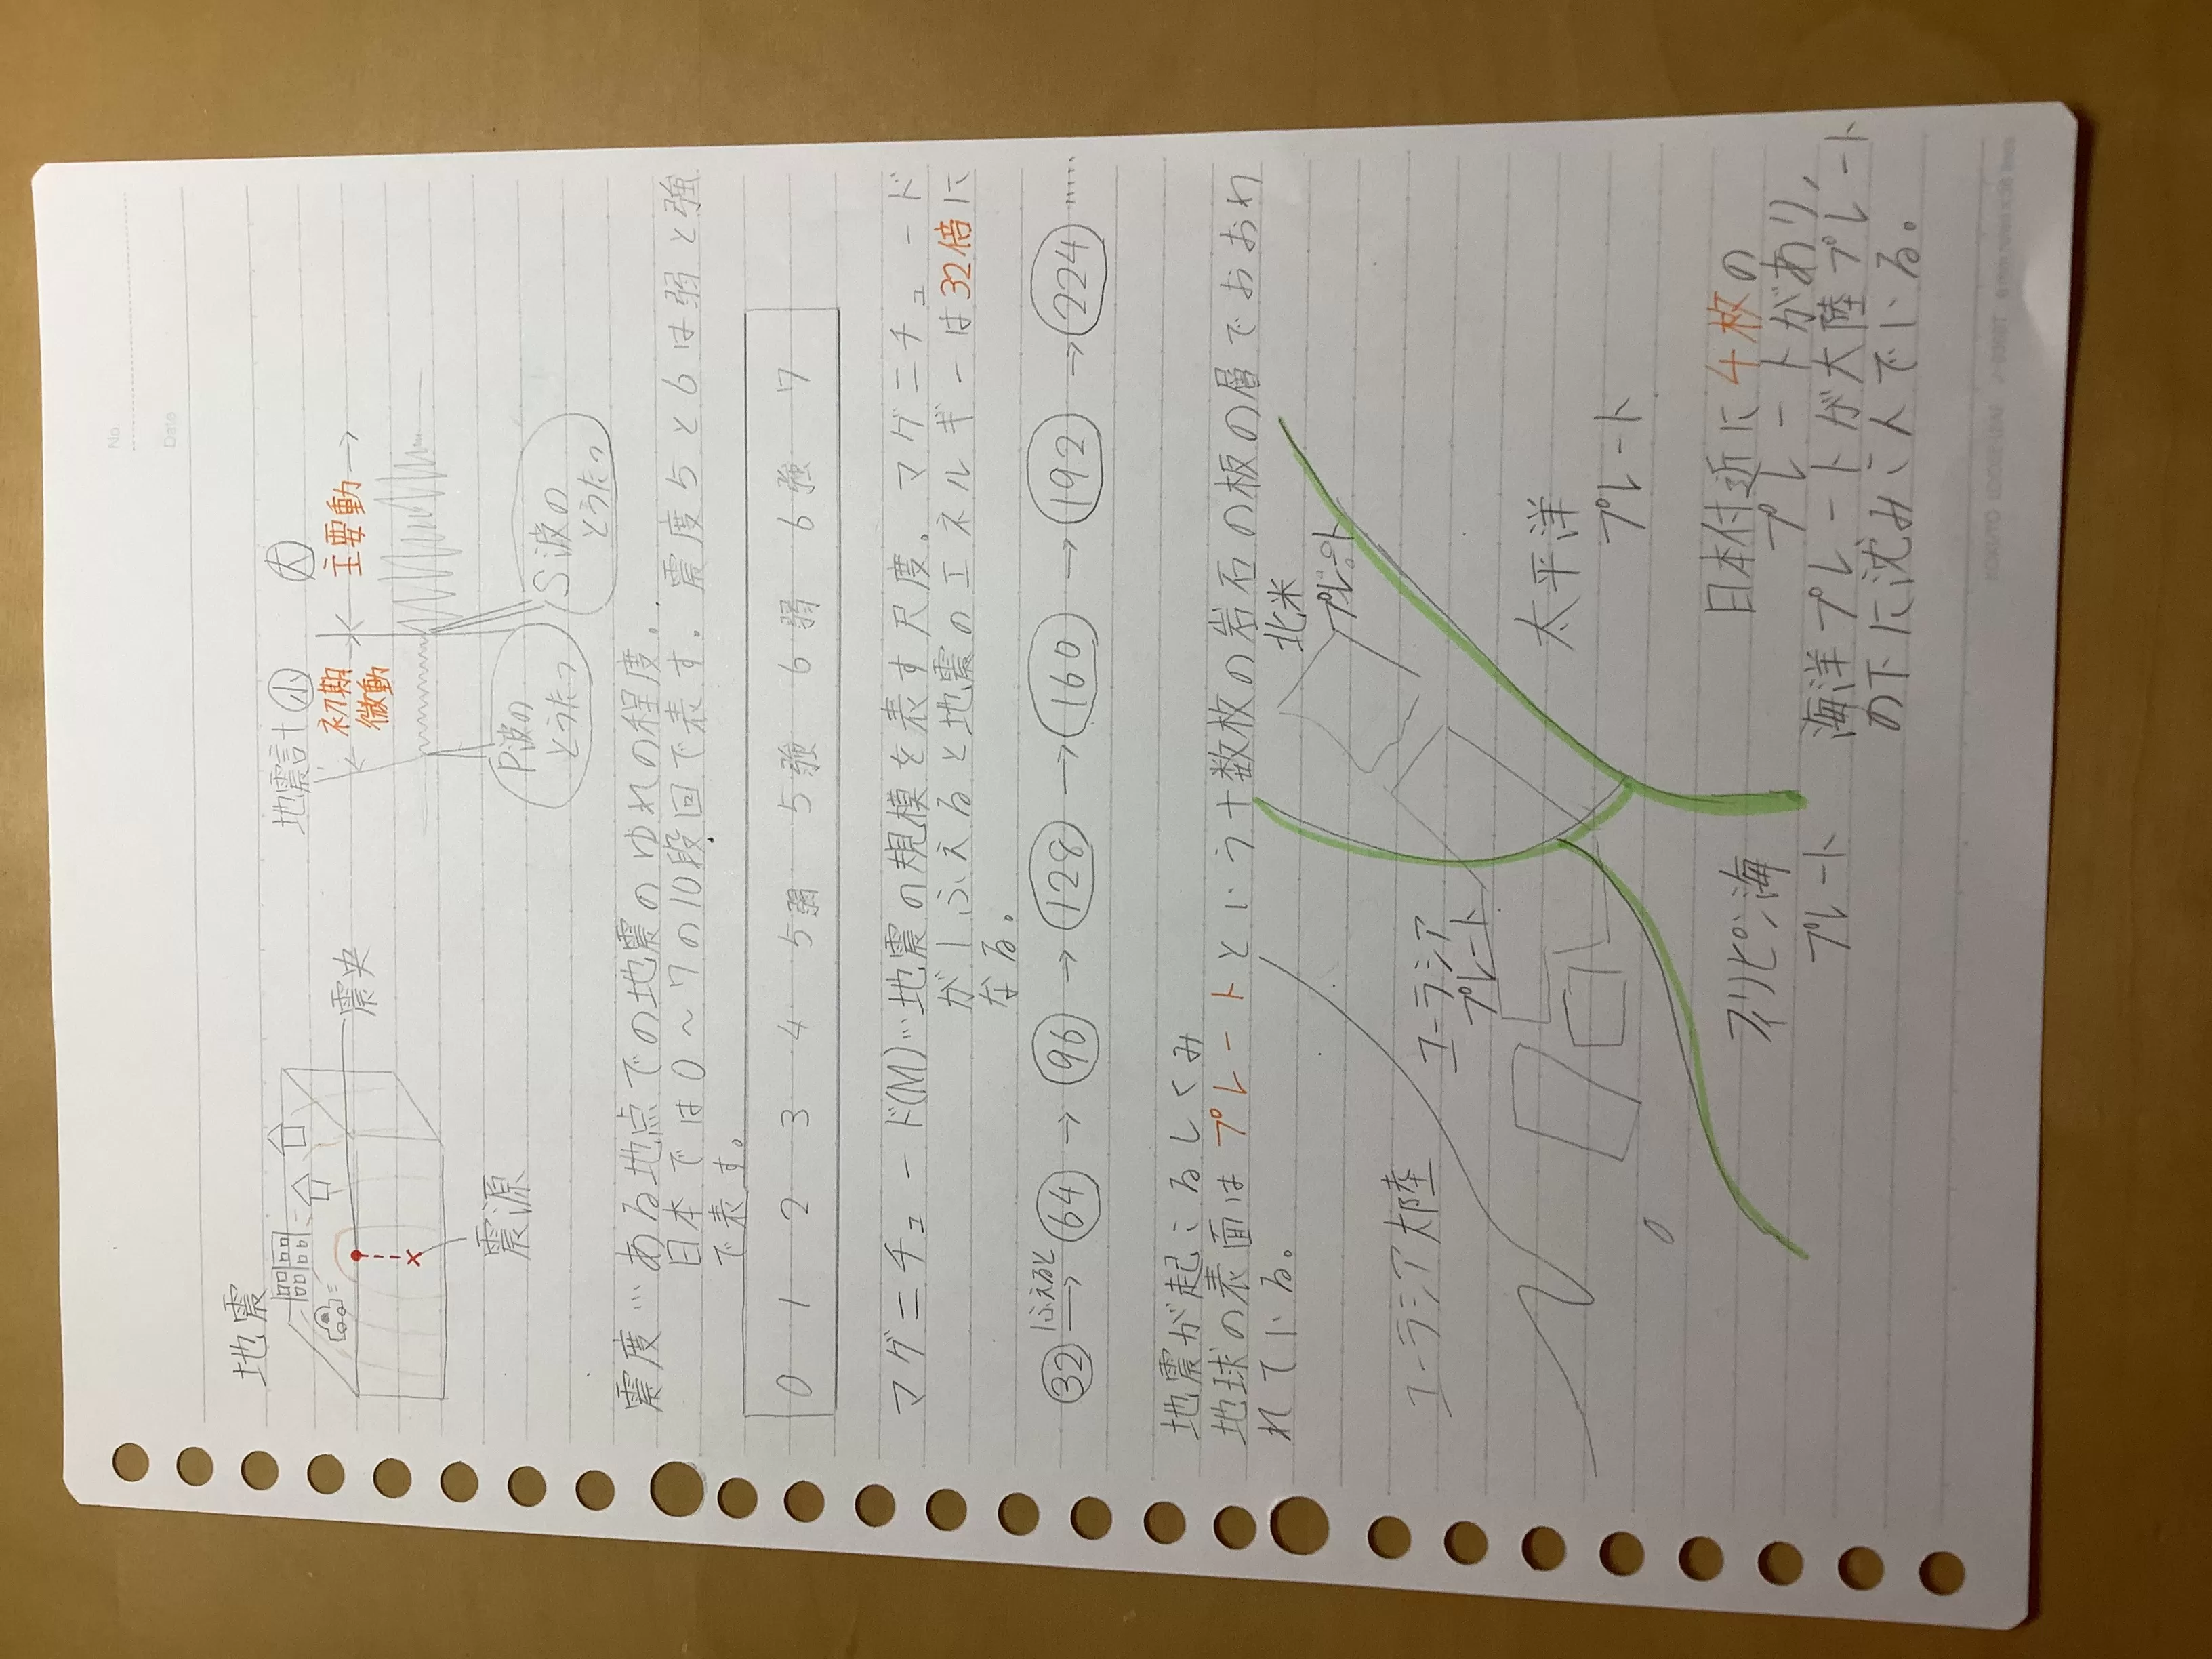 No.
Date
地震
震央
震源
地震計 小 大
初期
微動
主要動
P波の
とうたつ
S波の
とうたつ
震度…ある地点での地震のゆれの程度。
日本では0〜7の10段回で表す。震度5と6は弱と強
で表す。
0 1 2 3 4 5弱 5強 6弱 6強 7
マグニチュード(M)…地震の規模を表す尺度。マグニチュード
が1ふえると地震のエネルギーは32倍に
なる。
1ふえると
32→64→96→128→160→192→224……
地震が起こるしくみ
地球の表面はプレートという十数枚の岩石の板の層でおおわ
れている。
北米
プレート
ユーラシア大陸
ユーラシア
プレート
太平洋
プレート
フィリピン海
プレート
日本付近に4枚の
プレートがあり、
海洋プレートが大陸プレート
の下に沈みこんでいる。